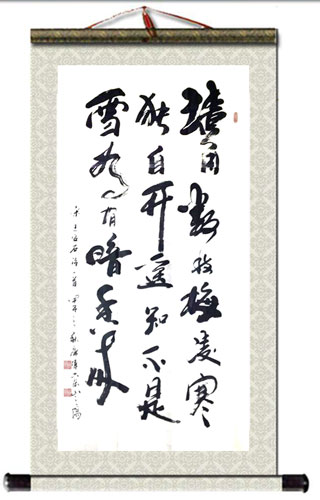 墙角数枝梅凌寒
独自开遥知不是
雪为有暗香来
宋王安石诗一首